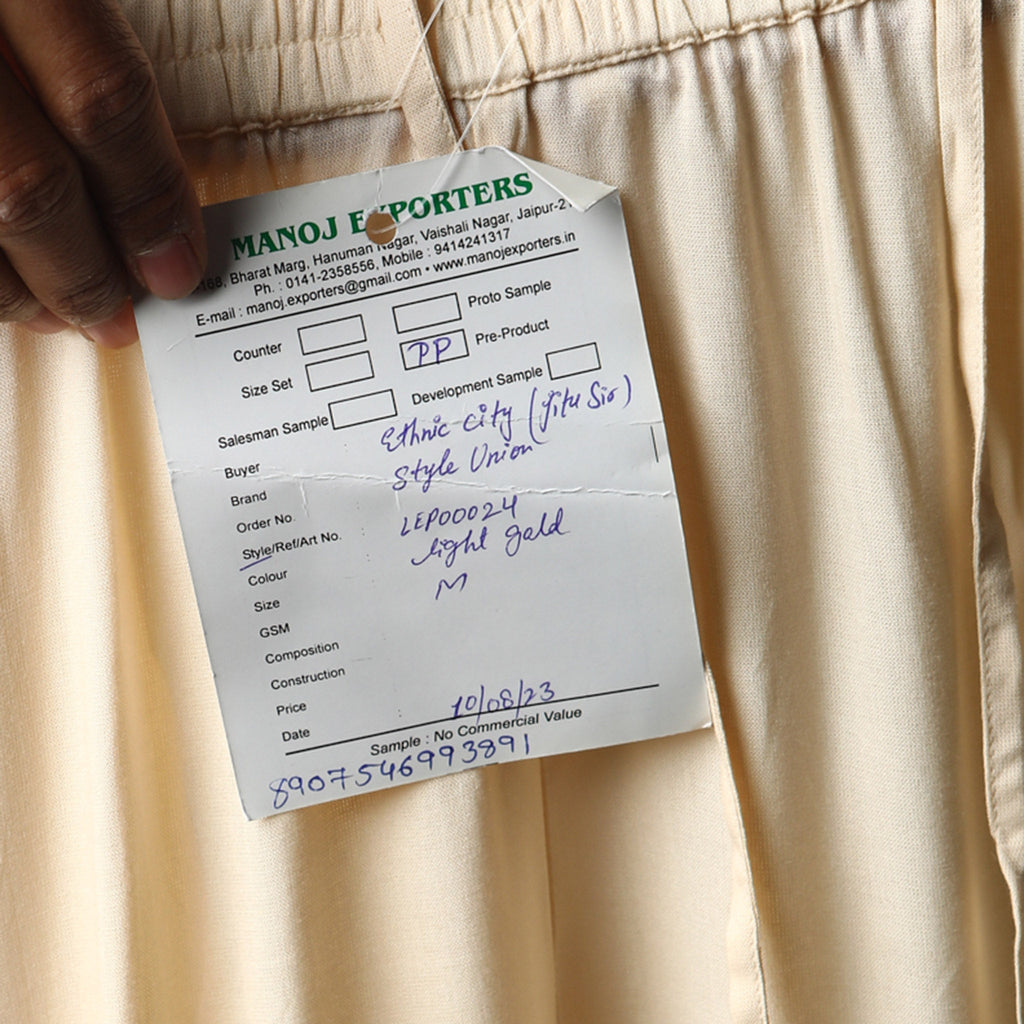 MANOJ EXPORTERS
168, Bharat Marg, Hanuman Nagar, Vaishali Nagar, Jaipur-21
Ph. : 0141-2358556, Mobile : 9414241317
E-mail : manoj.exporters@gmail.com • www.manojexporters.in
Counter Proto Sample
Size Set PP Pre-Product
Salesman Sample Development Sample
Buyer Ethnic city (Jitu Sir)
Brand Style Union
Order No.
Style/Ref/Art No. : LEP00024
Colour light gold
Size M
GSM
Composition
Construction
Price
Date : 10/08/23
Sample : No Commercial Value
8907546993891